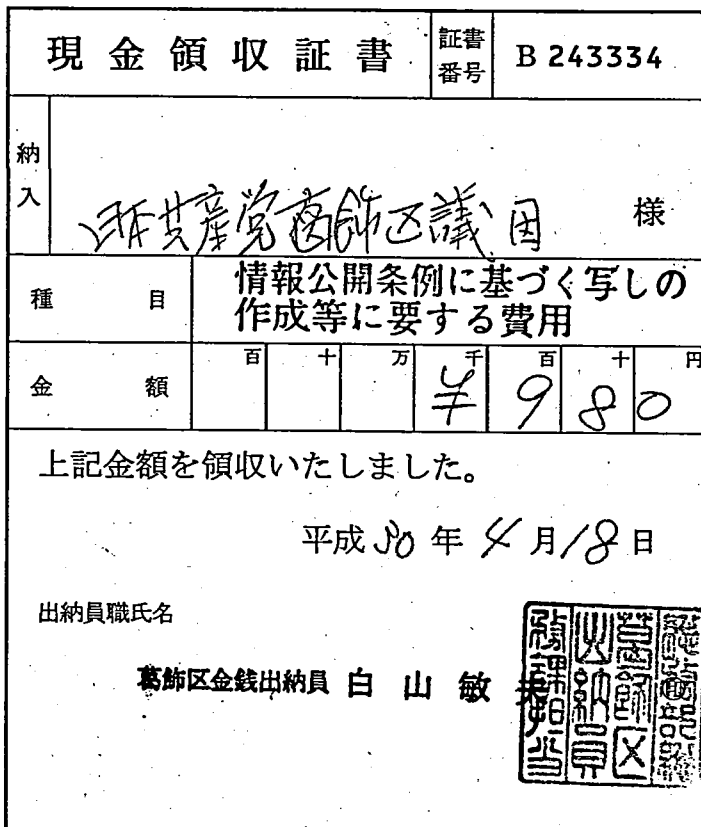 現金領収証書
証書番号
B 243334
納入
日本共産党葛飾区議団 様
種目
情報公開条例に基づく写しの
作成等に要する費用
金額
百 十 万 千 百 十 円
¥ 9 8 0
上記金額を領収いたしました。
平成 30 年 4 月 18 日
出納員職氏名
葛飾区金銭出納員 白山敏夫
葛飾区
出納員